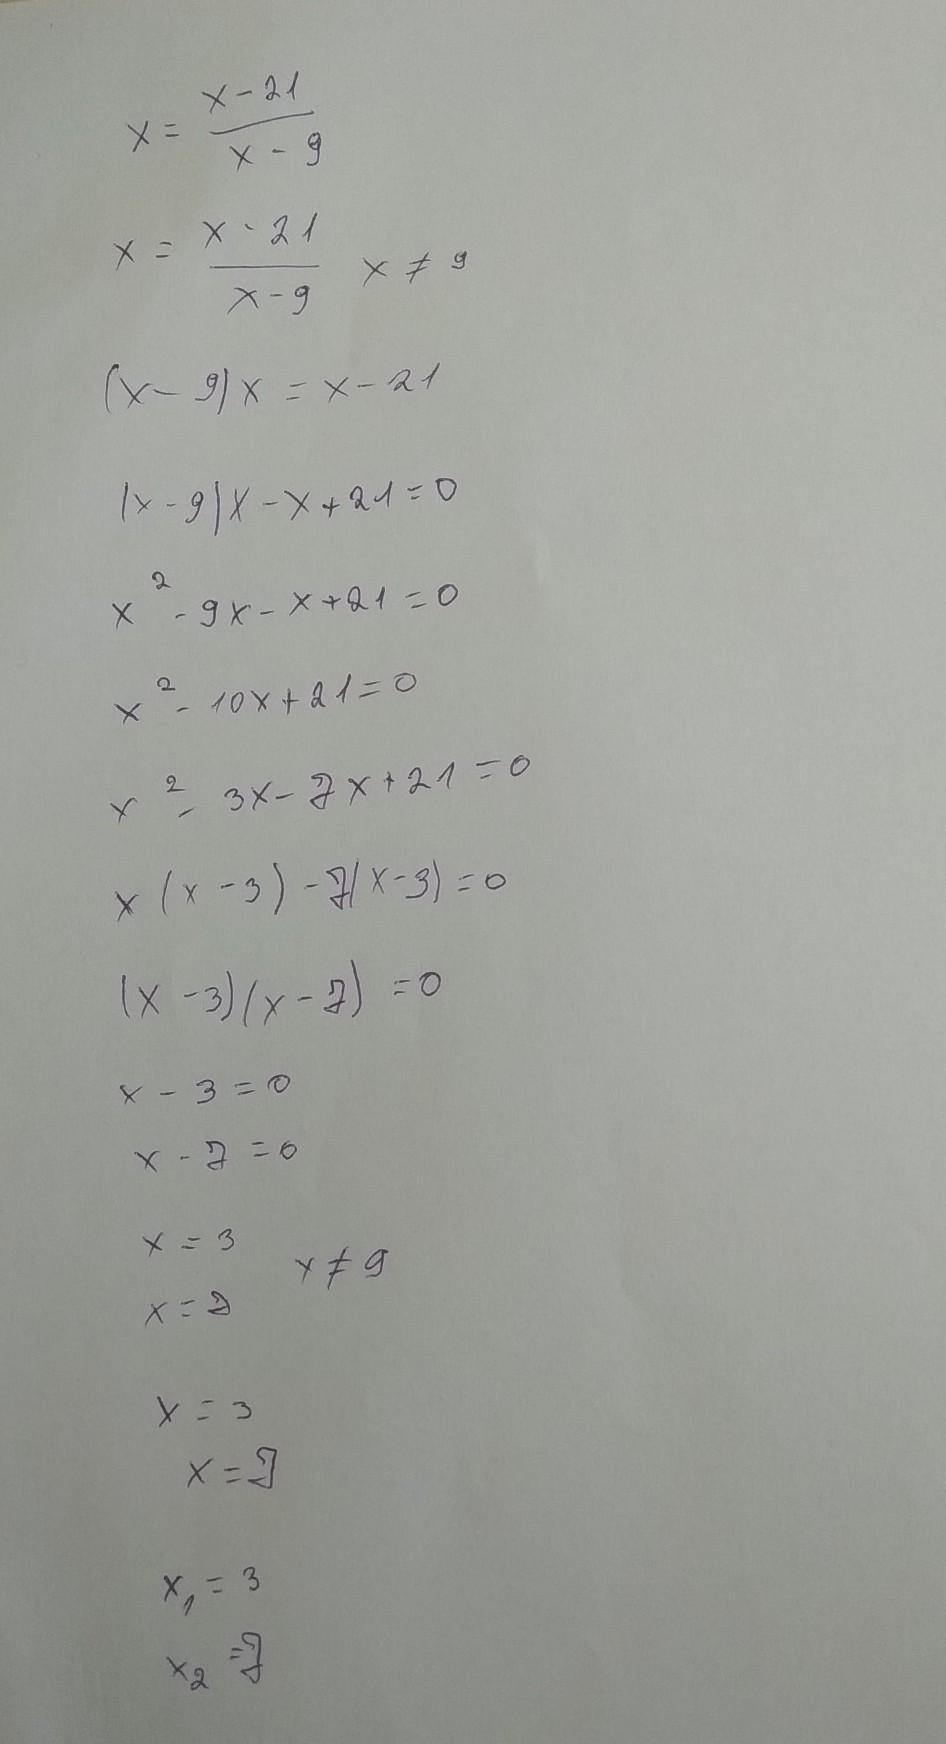 x = (x - 21)/(x - 9)
x = (x - 21)/(x - 9) x ≠ 9
(x - 9)x = x - 21
(x - 9)x - x + 21 = 0
x² - 9x - x + 21 = 0
x² - 10x + 21 = 0
x² - 3x - 7x + 21 = 0
x(x - 3) - 7(x - 3) = 0
(x - 3)(x - 7) = 0
x - 3 = 0
x - 7 = 0
x = 3
x ≠ 9
x = 7
x = 3
x = 7
x₁ = 3
x₂ = 7